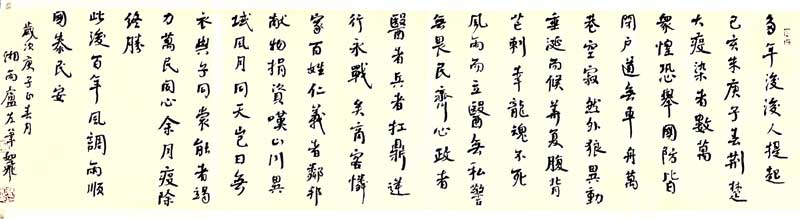 多年後後人提起
己亥末庚子春荆楚
大疫染者數萬
衆惶恐舉國防皆
閉户道無車舟萬
巷空寂然外狼異動
垂涎而候華夏腹背
芒刺幸龍魂不死
風雨而立醫無私警
無畏民齊心政者
醫者兵者扛鼎逆
行永戰矣商客憐
家百姓仁義者鄰邦
献物捐資嘆山川異
域風月同天豈曰無
衣與子同裳能者竭
力萬民同心余月疫除
終勝
此後百年風調雨順
國泰民安
歲次庚子正春月
湘南盧